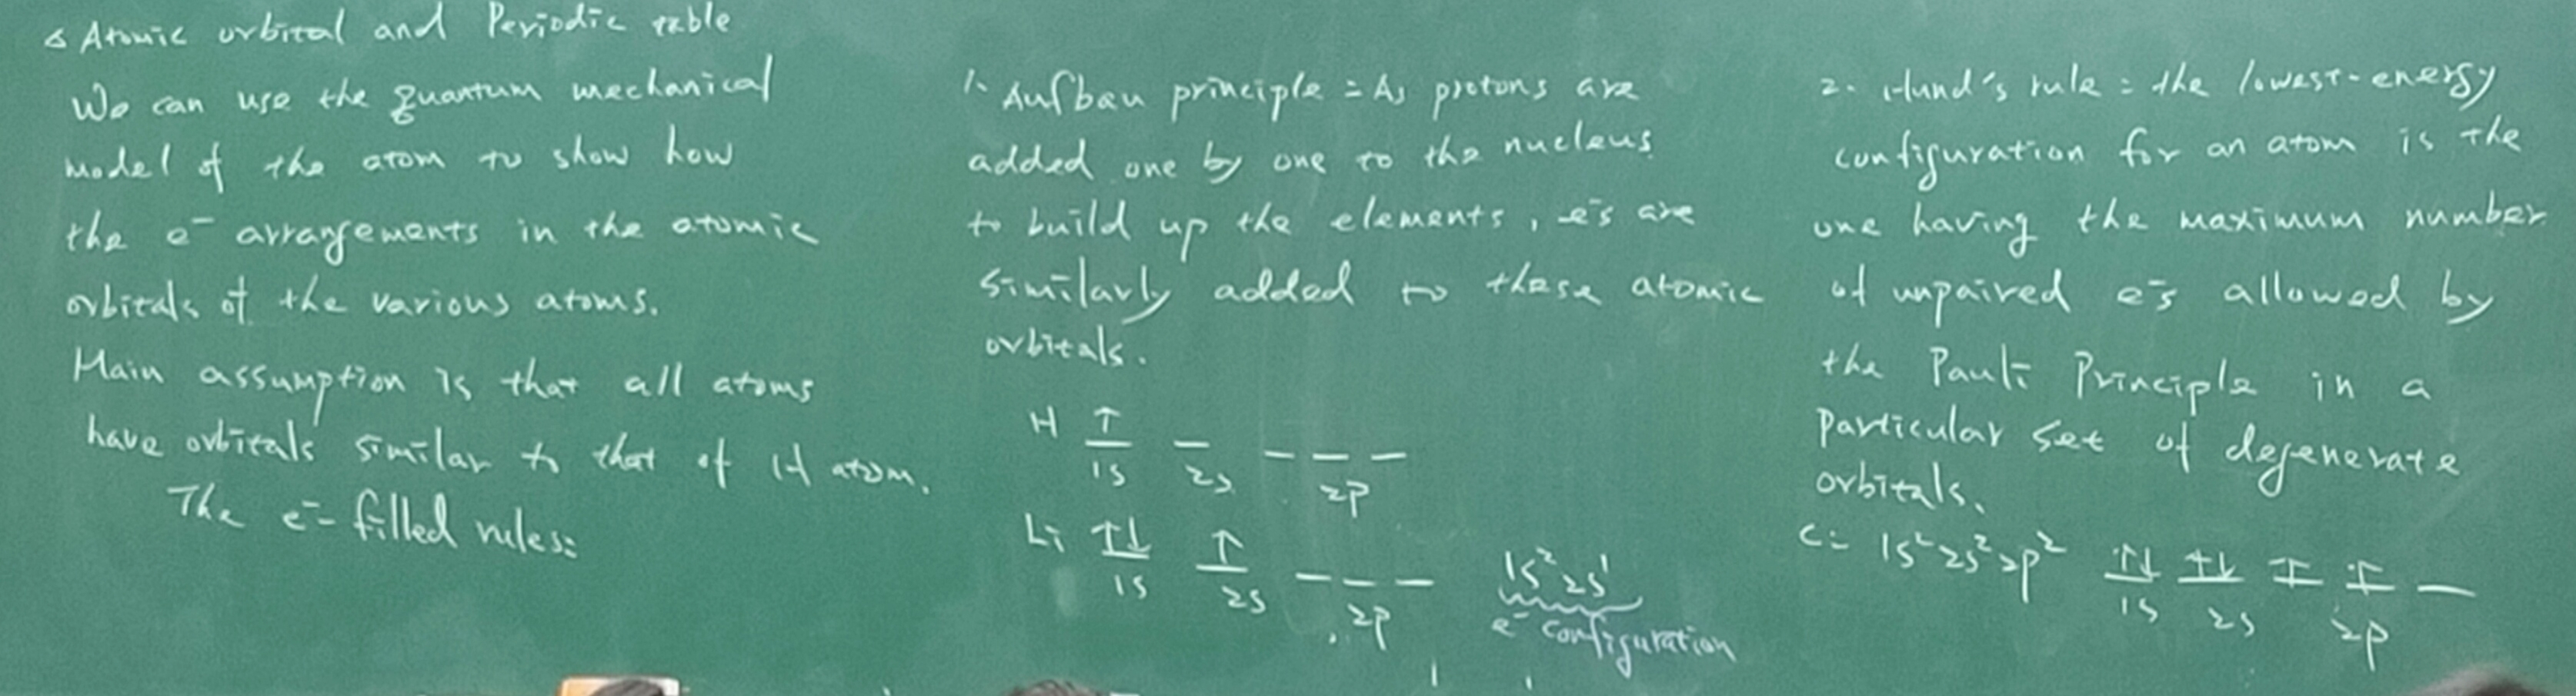 △ Atomic orbital and Periodic table
We can use the quantum mechanical
model of the atom to show how
the e⁻ arrangements in the atomic
orbitals of the various atoms.
Main assumption is that all atoms
have orbitals similar to that of H atom.
The e⁻ filled rules:
1. Aufbau principle = As protons are
added one by one to the nucleus
to build up the elements, e⁻s are
similarly added to these atomic
orbitals.
H ↑ — — — —
1s 2s 2p
Li ↑↓ ↑ — — — 1s² 2s¹
1s 2s 2p e⁻ configuration
2. Hund's rule = the lowest-energy
configuration for an atom is the
one having the maximum number
of unpaired e⁻s allowed by
the Pauli Principle in a
particular set of degenerate
orbitals.
C = 1s² 2s² 2p² ↑↓ ↑↓ ↑ ↑ —
1s 2s 2p